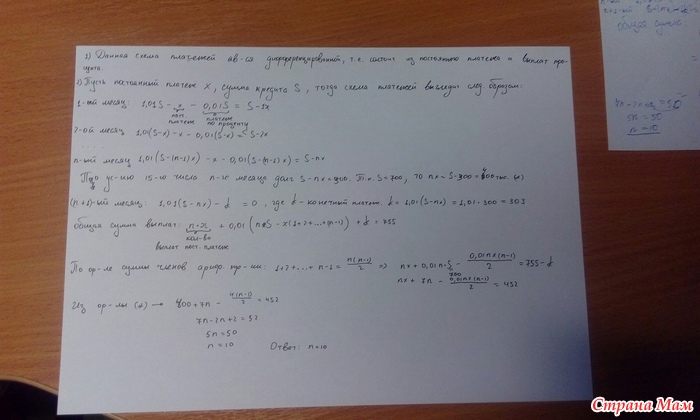 1) Данная схема платежей яв-ся дифференцированной, т.к. состоит из постоянного платежа и выплат про-
цента.
2) Пусть постоянный платеж x, сумма кредита S, тогда схема платежей выглядит след. образом:
1-ый месяц: 1,01S - x - 0,01S = S - 1x
пост. платеж
платеж по проценту
2-ой месяц 1,01(S-x) - x - 0,01(S-x) = S-2x
.....
n-ый месяц 1,01(S-(n-1)x) - x - 0,01(S-(n-1)x) = S-nx
По ус-ию 15-ю число n-го месяца долг S-nx=300. Т.к. S=700, то nx = S-300 = 400 тыс. (*)
(n+1)-ый месяц: 1,01(S-nx) - b = 0, где b - конечный платеж. b = 1,01(S-nx) = 1,01·300 = 303
общая сумма выплат: n·x + 0,01(nS - x(1+2+...+(n-1)) + b = 755
кол-во
выплат пост. платеж
По ф-ле суммы членов арифм. пр-ии: 1+2+...+n-1 = n(n-1)/2 => nx + 0,01n·S - 0,01nx(n-1)/2 = 755-b
700
nx + 7n - 0,01nx(n-1)/2 = 452
Из ф-лы (*) → 400+7n - 4(n-1)/2 = 452
7n-2n+2 = 52
5n = 50
n = 10
Ответ: n=10
общая сумма
5n = 50
n = 10
Страна Мам